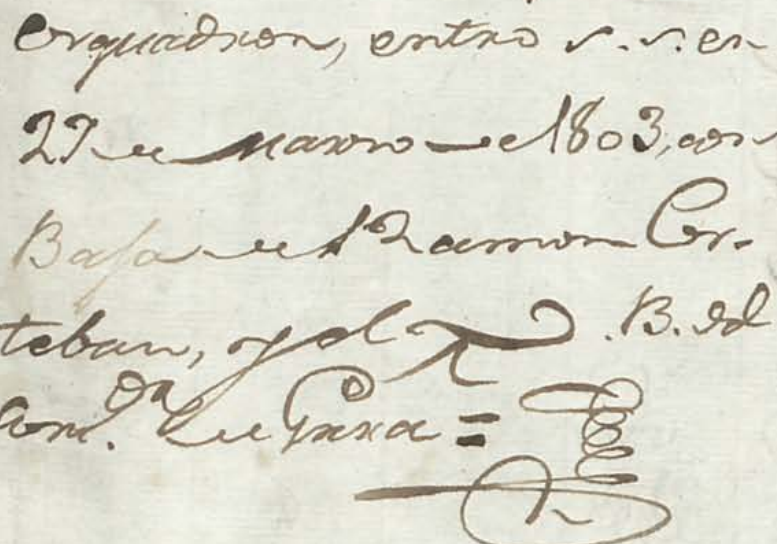 Esquadron, entró s.s. en
27 de Marzo de 1803, con
Baja de Ramon Es-
teban, y el V. B. del
Com.te de Grra =